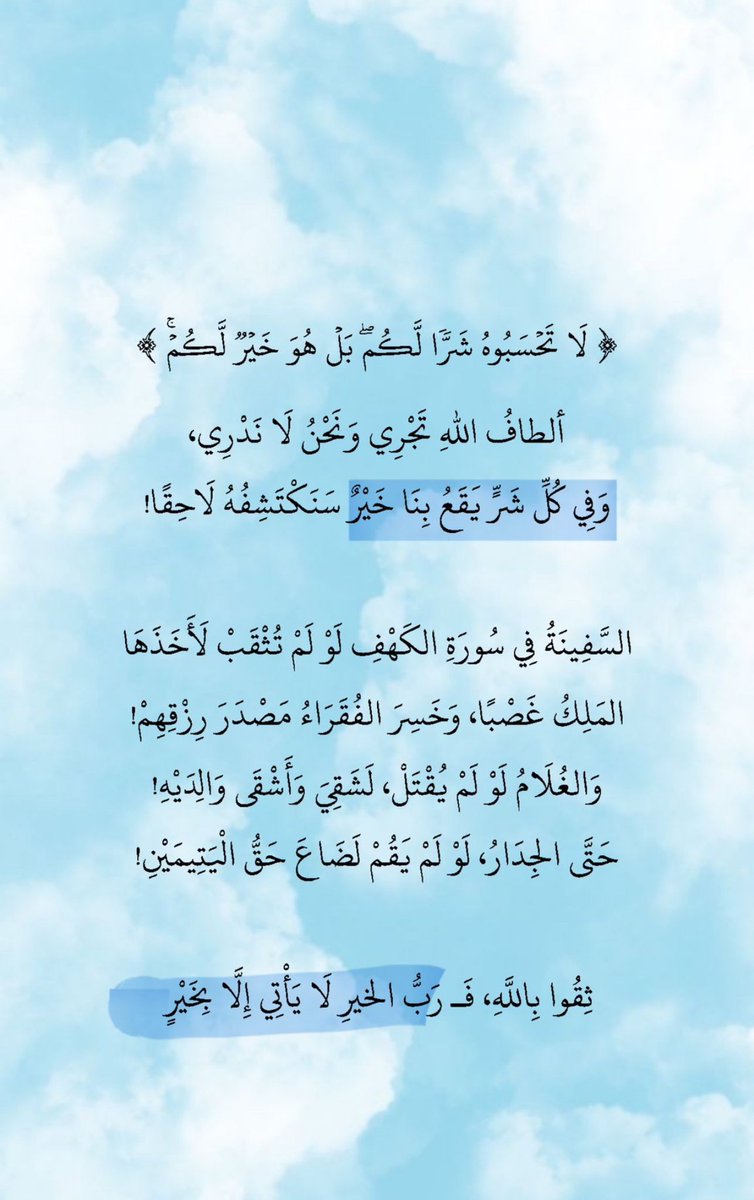 ﴿ لَا تَحْسَبُوهُ شَرًّا لَّكُم ۖ بَلْ هُوَ خَيْرٌ لَّكُمْ ۚ ﴾
ألطافُ اللهِ تَجْرِي وَنَحْنُ لَا نَدْرِي،
وَفِي كُلِّ شَرٍّ يَقَعُ بِنَا خَيْرٌ سَنَكْتَشِفُهُ لَاحِقًا!
السَّفِينَةُ فِي سُورَةِ الكَهْفِ لَوْ لَمْ تُثْقَبْ لَأَخَذَهَا
المَلِكُ غَصْبًا، وَخَسِرَ الفُقَرَاءُ مَصْدَرَ رِزْقِهِمْ!
وَالغُلَامُ لَوْ لَمْ يُقْتَلْ، لَشَقِيَ وَأَشْقَى وَالِدَيْهِ!
حَتَّى الجِدَارُ، لَوْ لَمْ يَقُمْ لَضَاعَ حَقُّ الْيَتِيمَيْنِ!
ثِقُوا بِاللَّهِ، فَـ رَبُّ الخيرِ لَا يَأْتِي إِلَّا بِخَيْرٍ